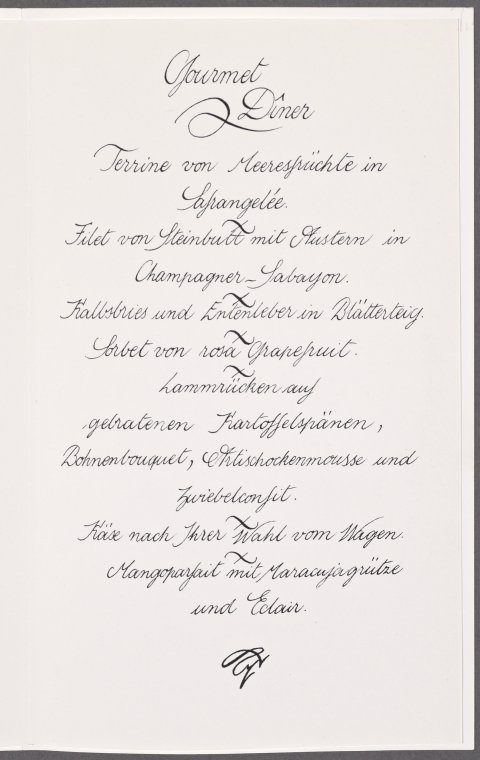 Gourmet
Dîner
Terrine von Meeresfrüchte in
Safrangelée.
Filet von Steinbutt mit Austern in
Champagner-Sabayon.
Kalbsbries und Entenleber in Blätterteig.
Sorbet von rosa Grapefruit.
Lammrücken auf
gebratenen Kartoffelspänen,
Bohnenbouquet, Artischockenmousse und
Zwiebelconfit.
Käse nach Ihrer Wahl vom Wagen.
Mangoparfait mit Maracujagrütze
und Eclair.